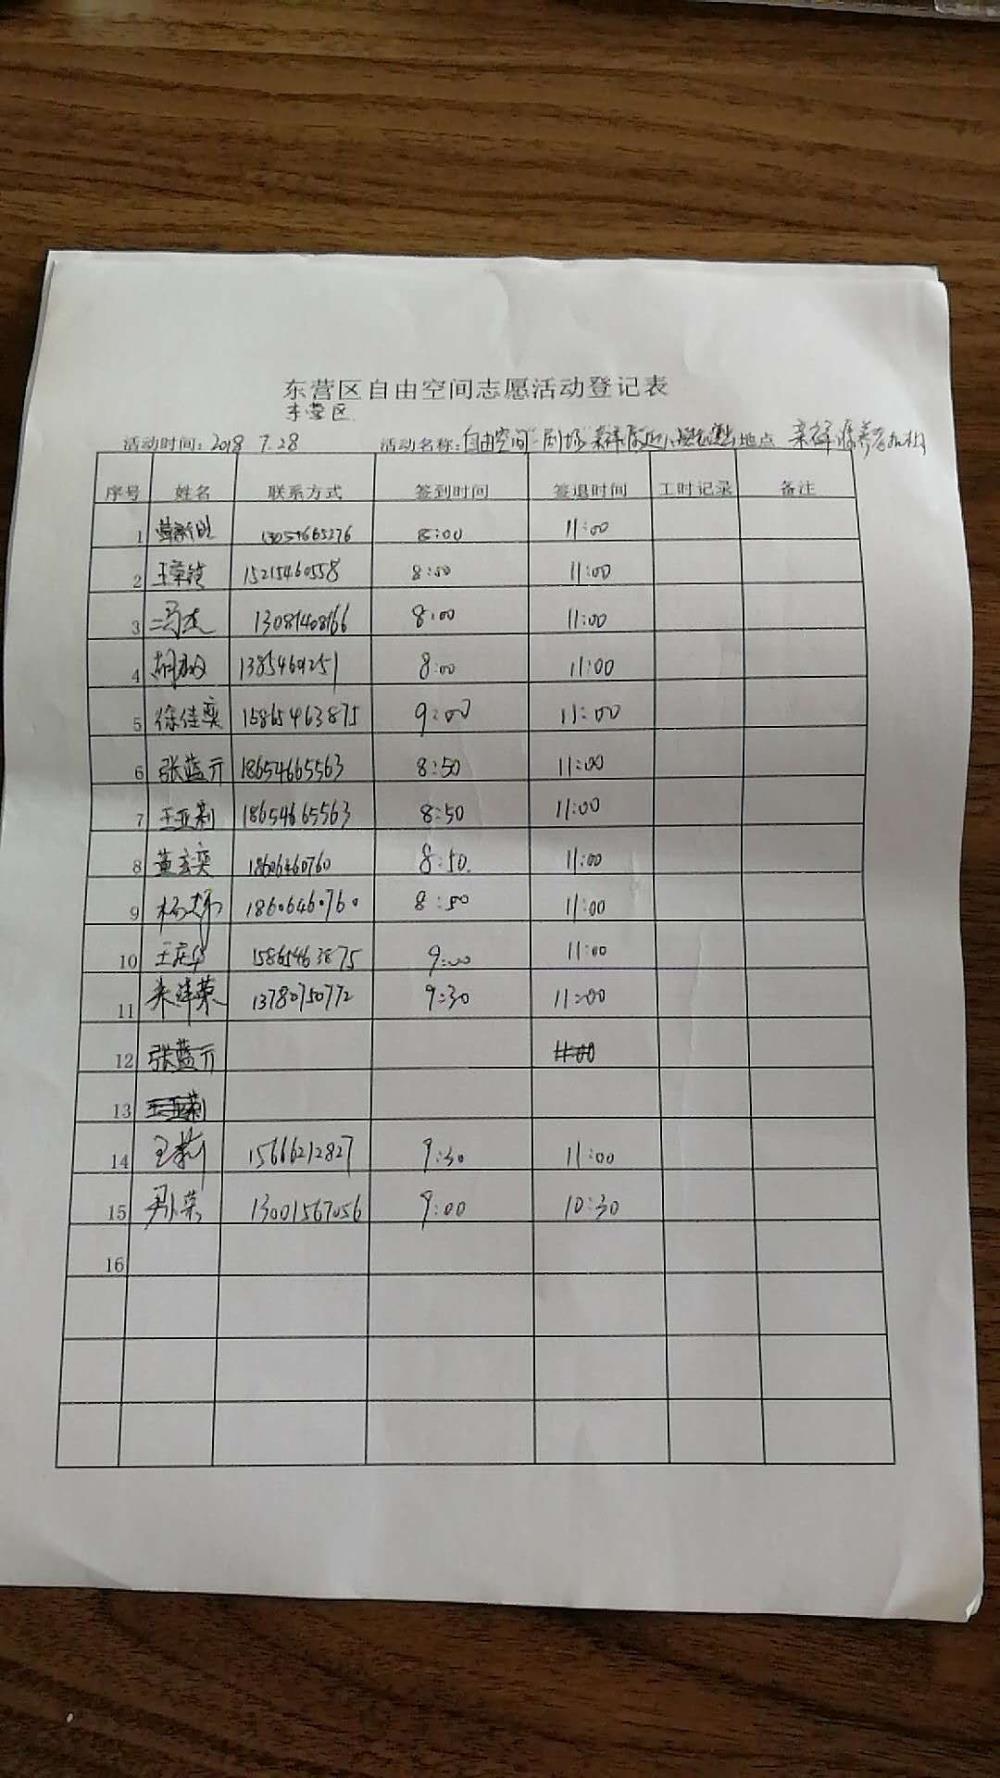 东营区自由空间志愿活动登记表
东营区
活动时间：2018 7.28 活动名称：自由空间 剧场 地点
序号 姓名 联系方式 签到时间 签退时间 工时记录 备注
1 13054665276 8:00 11:00
2 15215460558 8:50 11:00
3 冯杰 13081408166 8:00 11:00
4 1385469251 8:00 11:00
5 徐佳奕 15865463875 9:00 11:00
6 张蓝亓 18654665563 8:50 11:00
7 王亚莉 18654665563 8:50 11:00
8 黄玄奕 18606460760 8:50. 11:00
9 杨娜 18606460760 8:50 11:00
10 王庆华 15865463875 9:00 11:00
11 13780750772 9:30 11:00
12 张蓝亓 11:00
13 王亚莉
14 王莉 15666212827 9:30 11:00
15 13001567056 9:00 10:30
16